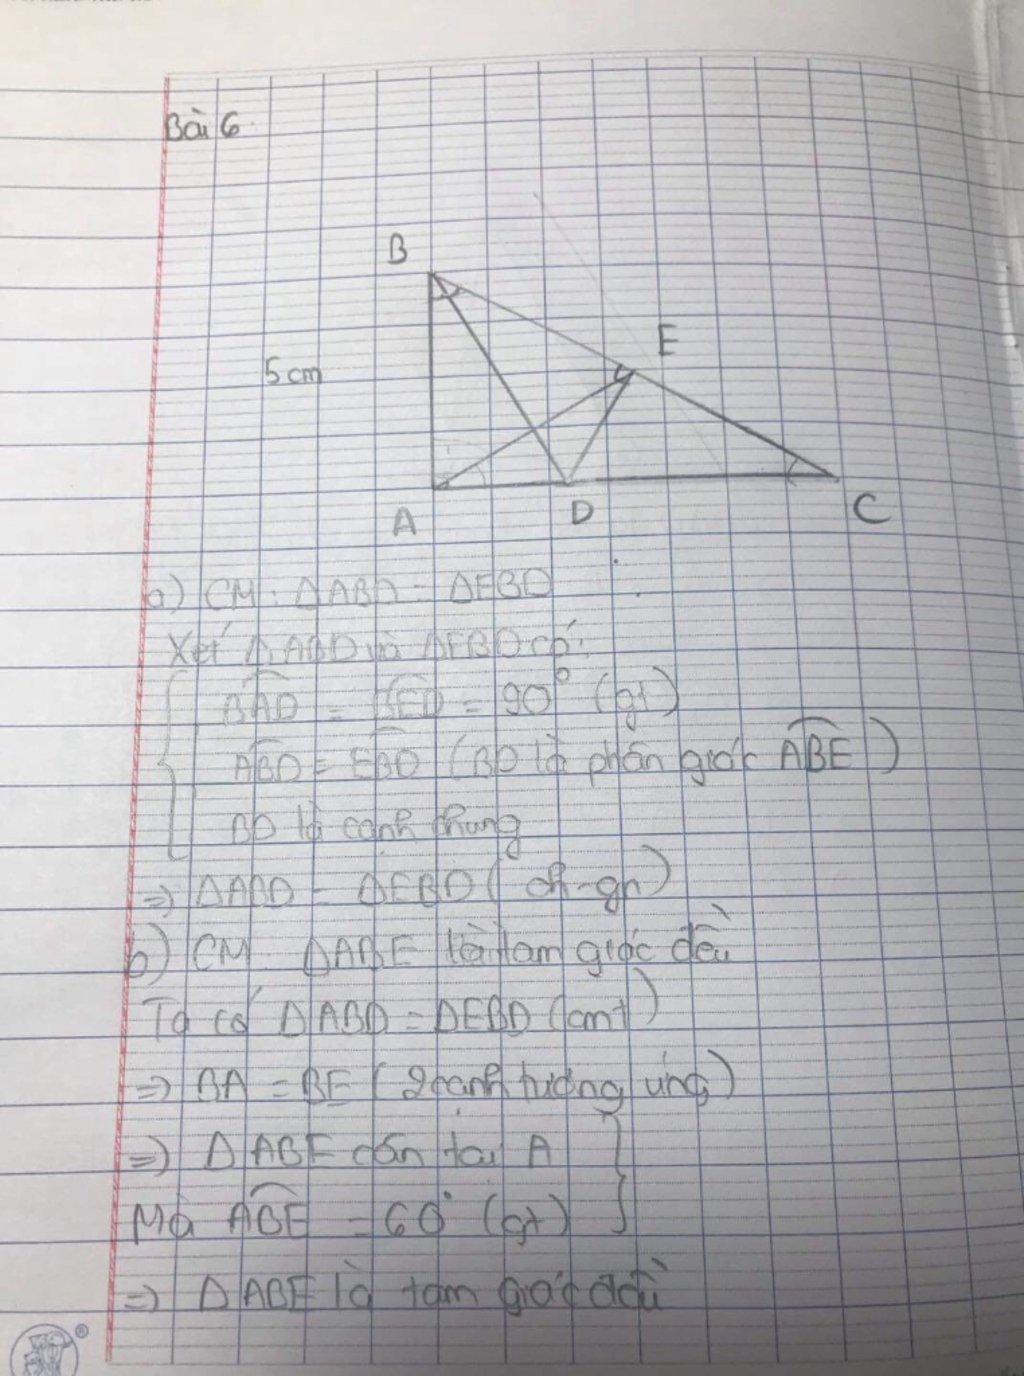 Bài 6
B
E
5cm
A
D
C
a) CM: ΔABD = ΔEBD
Xét ΔABD và ΔEBD có:
BAD = BED = 90° (gt)
ABD = EBD (BD là phân giác ABE)
BD là cạnh chung
=> ΔABD = ΔEBD (ch-gn)
b) CM ΔABE là tam giác đều
Ta có ΔABD = ΔEBD (cmt)
=> BA = BE (2 cạnh tương ứng)
=> ΔABE cân tại A
Mà ABE = 60° (gt)
=> ΔABE là tam giác đều